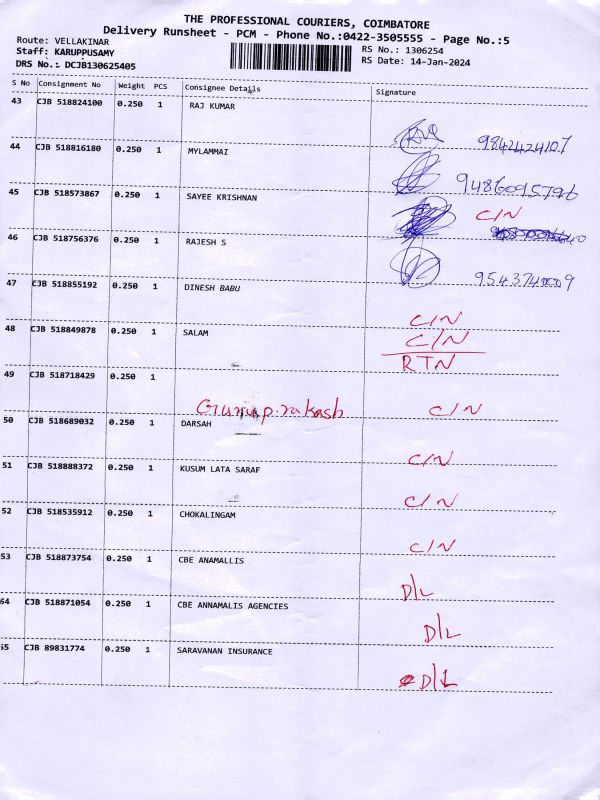 THE PROFESSIONAL COURIERS, COIMBATORE
Delivery Runsheet - PCM - Phone No.:0422-3505555 - Page No.:5
Route: VELLAKINAR
RS No.: 1306254
Staff: KARUPPUSAMY
RS Date: 14-Jan-2024
DRS No.: DCJB130625405
S No Consignment No Weight PCS Consignee Details Signature
43 CJB 518824100 0.250 1 RAJ KUMAR
9842424107
44 CJB 518816180 0.250 1 MYLAMMAI
9486095796
45 CJB 518573867 0.250 1 SAYEE KRISHNAN
C/N
46 CJB 518756376 0.250 1 RAJESH S
9543740009
47 CJB 518855192 0.250 1 DINESH BABU
C/N
48 CJB 518849878 0.250 1 SALAM
C/N
RTN
49 CJB 518718429 0.250 1
Guruprakash C/N
50 CJB 518689032 0.250 1 DARSAH
C/N
51 CJB 518888372 0.250 1 KUSUM LATA SARAF
C/N
52 CJB 518535912 0.250 1 CHOKALINGAM
C/N
53 CJB 518873754 0.250 1 CBE ANAMALLIS
D/L
54 CJB 518871054 0.250 1 CBE ANNAMALIS AGENCIES
D/L
55 CJB 89831774 0.250 1 SARAVANAN INSURANCE
D/L